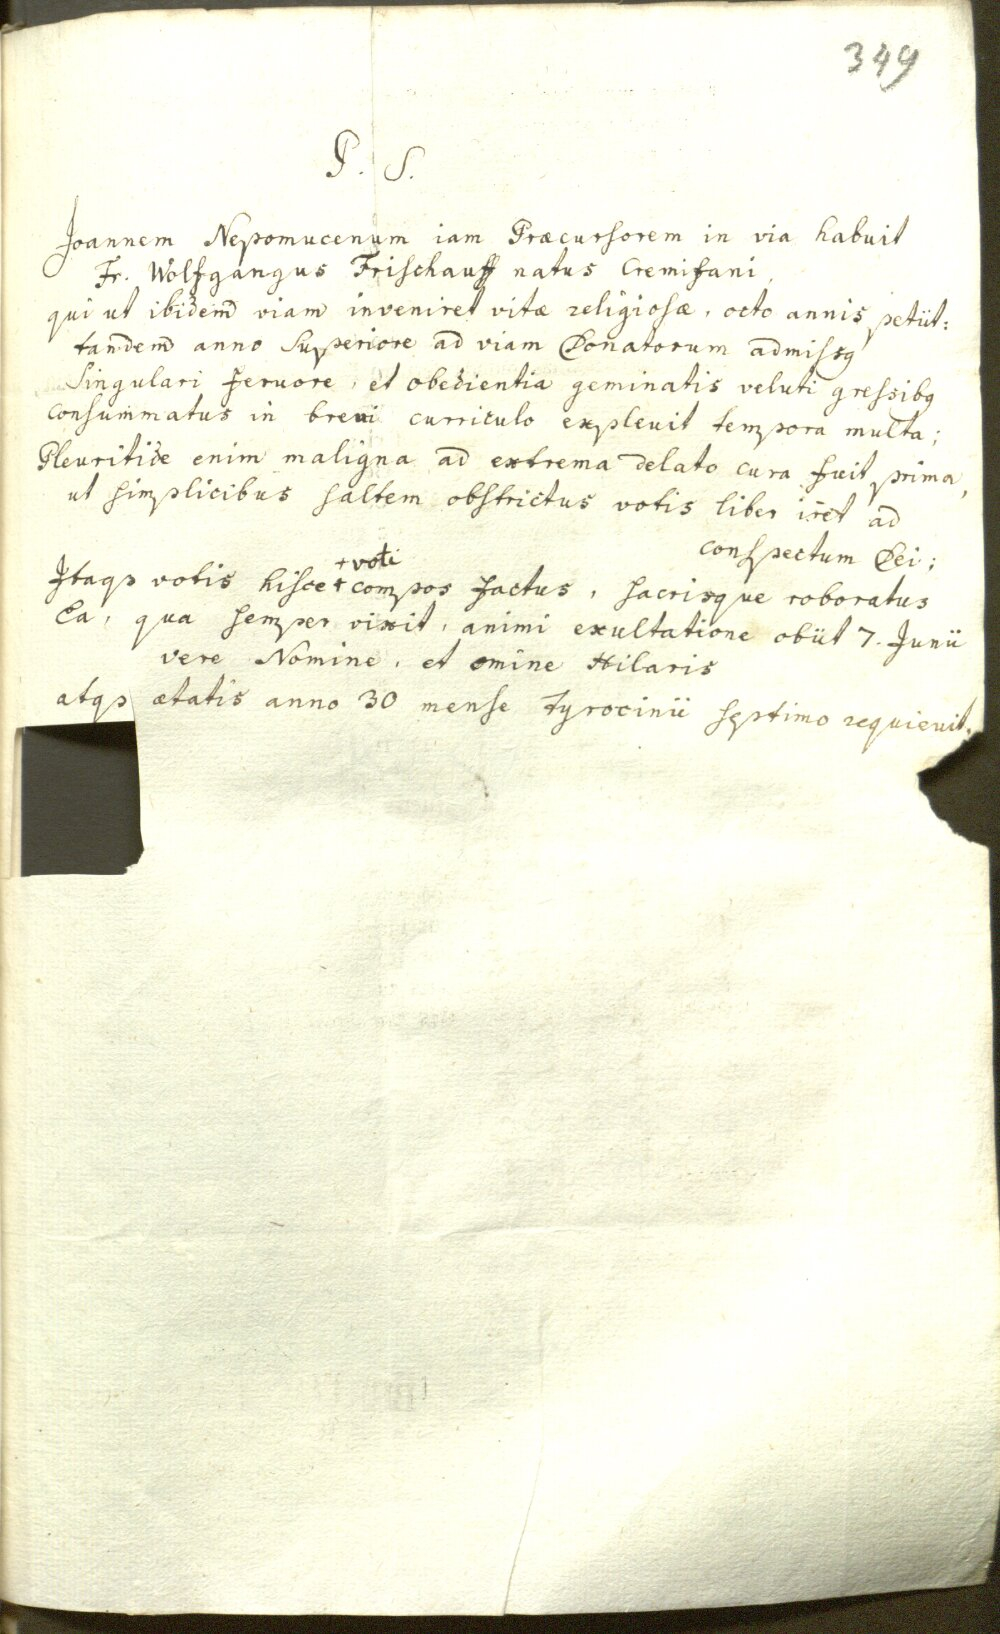 349
P. S.
Joannem Nepomucenum iam Præcursorem in via habuit
Fr. Wolfgangus Frischauff natus Cremifani,
qui ut ibidem viam inveniret vitæ religiosæ, octo annis petiit:
tandem anno Superiore ad viam Donatorum admissq
Singulari fervore, et obedientia geminatis veluti gressibq
consummatus in brevi curriculo explevit tempora multa;
Pleuritide enim maligna ad extrema delato cura fuit prima,
ut simplicibus saltem obstrictus votis liber iret ad
conspectum Dei;
+ voti
Itaqȝ votis hisce + compos factus, sacrisque roboratus
Ea, qua semper vixit, animi exultatione obiit 7. Junii
vere Nomine, et omine Hilaris
atqȝ ætatis anno 30 mense tyrocinii septimo requievit.